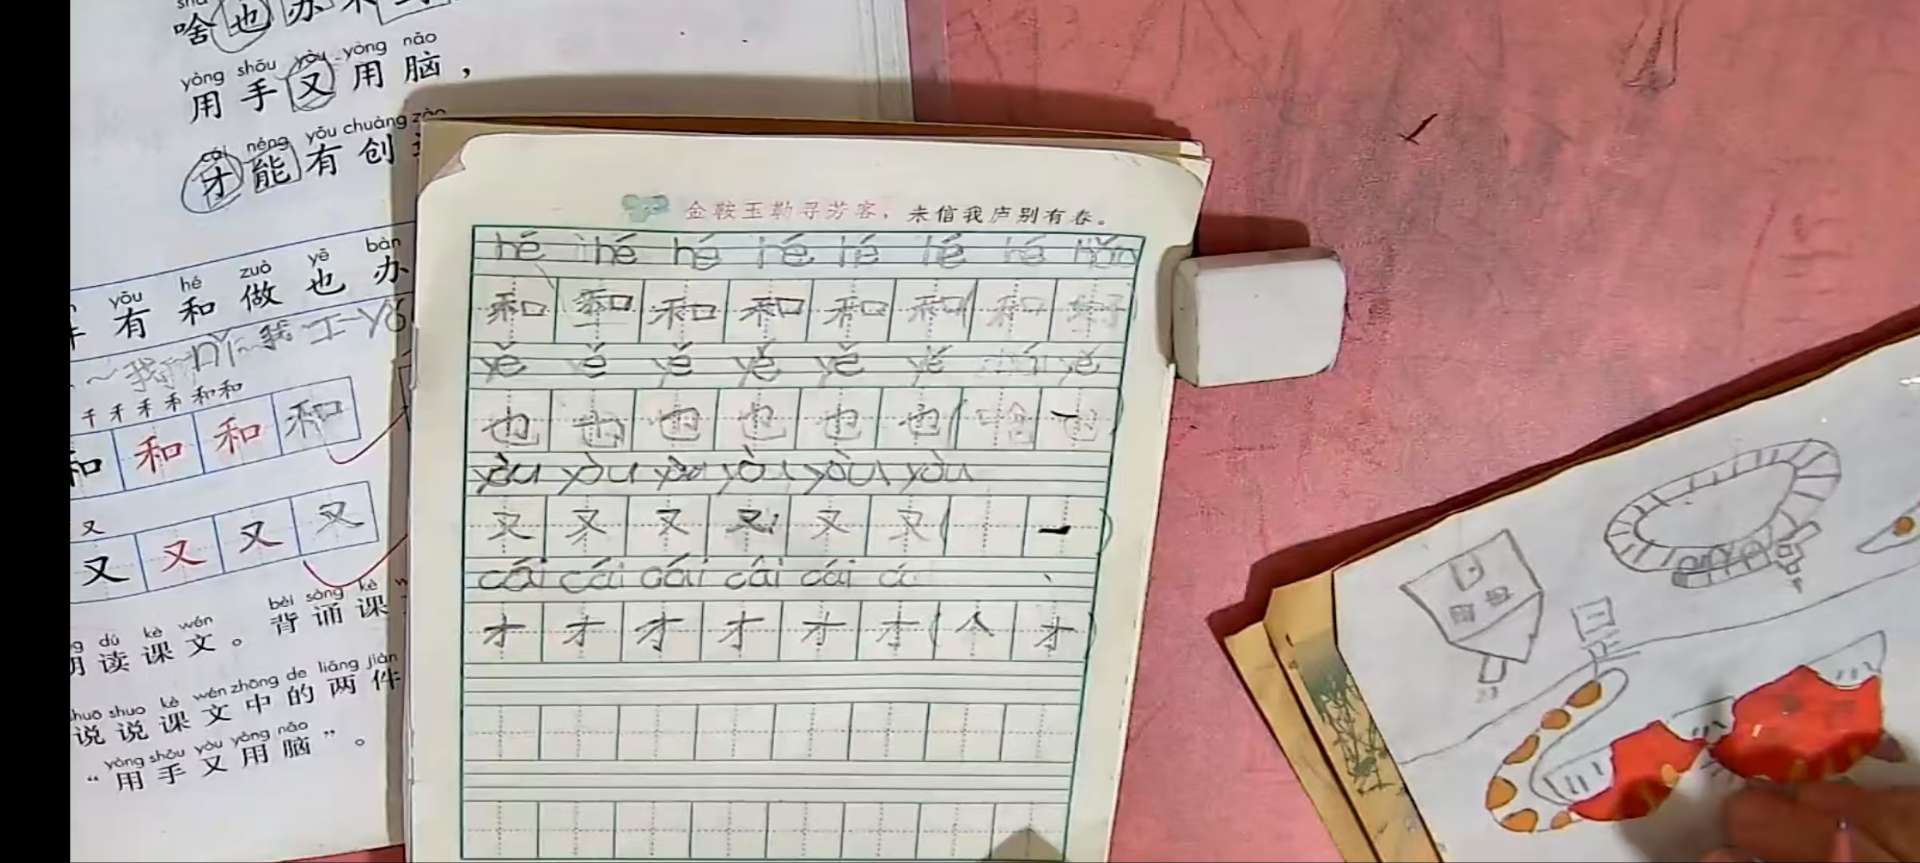 啥也办不
yòng shǒu yòu yòng nǎo
用手又用脑，
cái néng yǒu chuàng zào
才能有创
yǒu hé zuò yě bàn
有和做也办
我 nǐ 我 工 yǒ
千 禾 禾 禾 和 和
和 和 和 和
又
又 又 又 又
dú kè wén bèi sòng kè
朗读课文。背诵课
shuō shuo kè wén zhōng de liǎng jiàn
说说课文中的两件
yòng shǒu yòu yòng nǎo
“用手又用脑”。
金鞍玉勒寻芳客，未信我庐别有春。
hé hé hé hé hé hé hé
和 和 和 和 和 和 和
yě yě yě yě yě yě yě
也 也 也 也 也 也 ( 啥 也 )
yòu yòu yòu yòu yòu yòu
又 又 又 又 又 又 ( 一 )
cái cái cái cái cái cá
才 才 才 才 才 才 ( 个 才 )